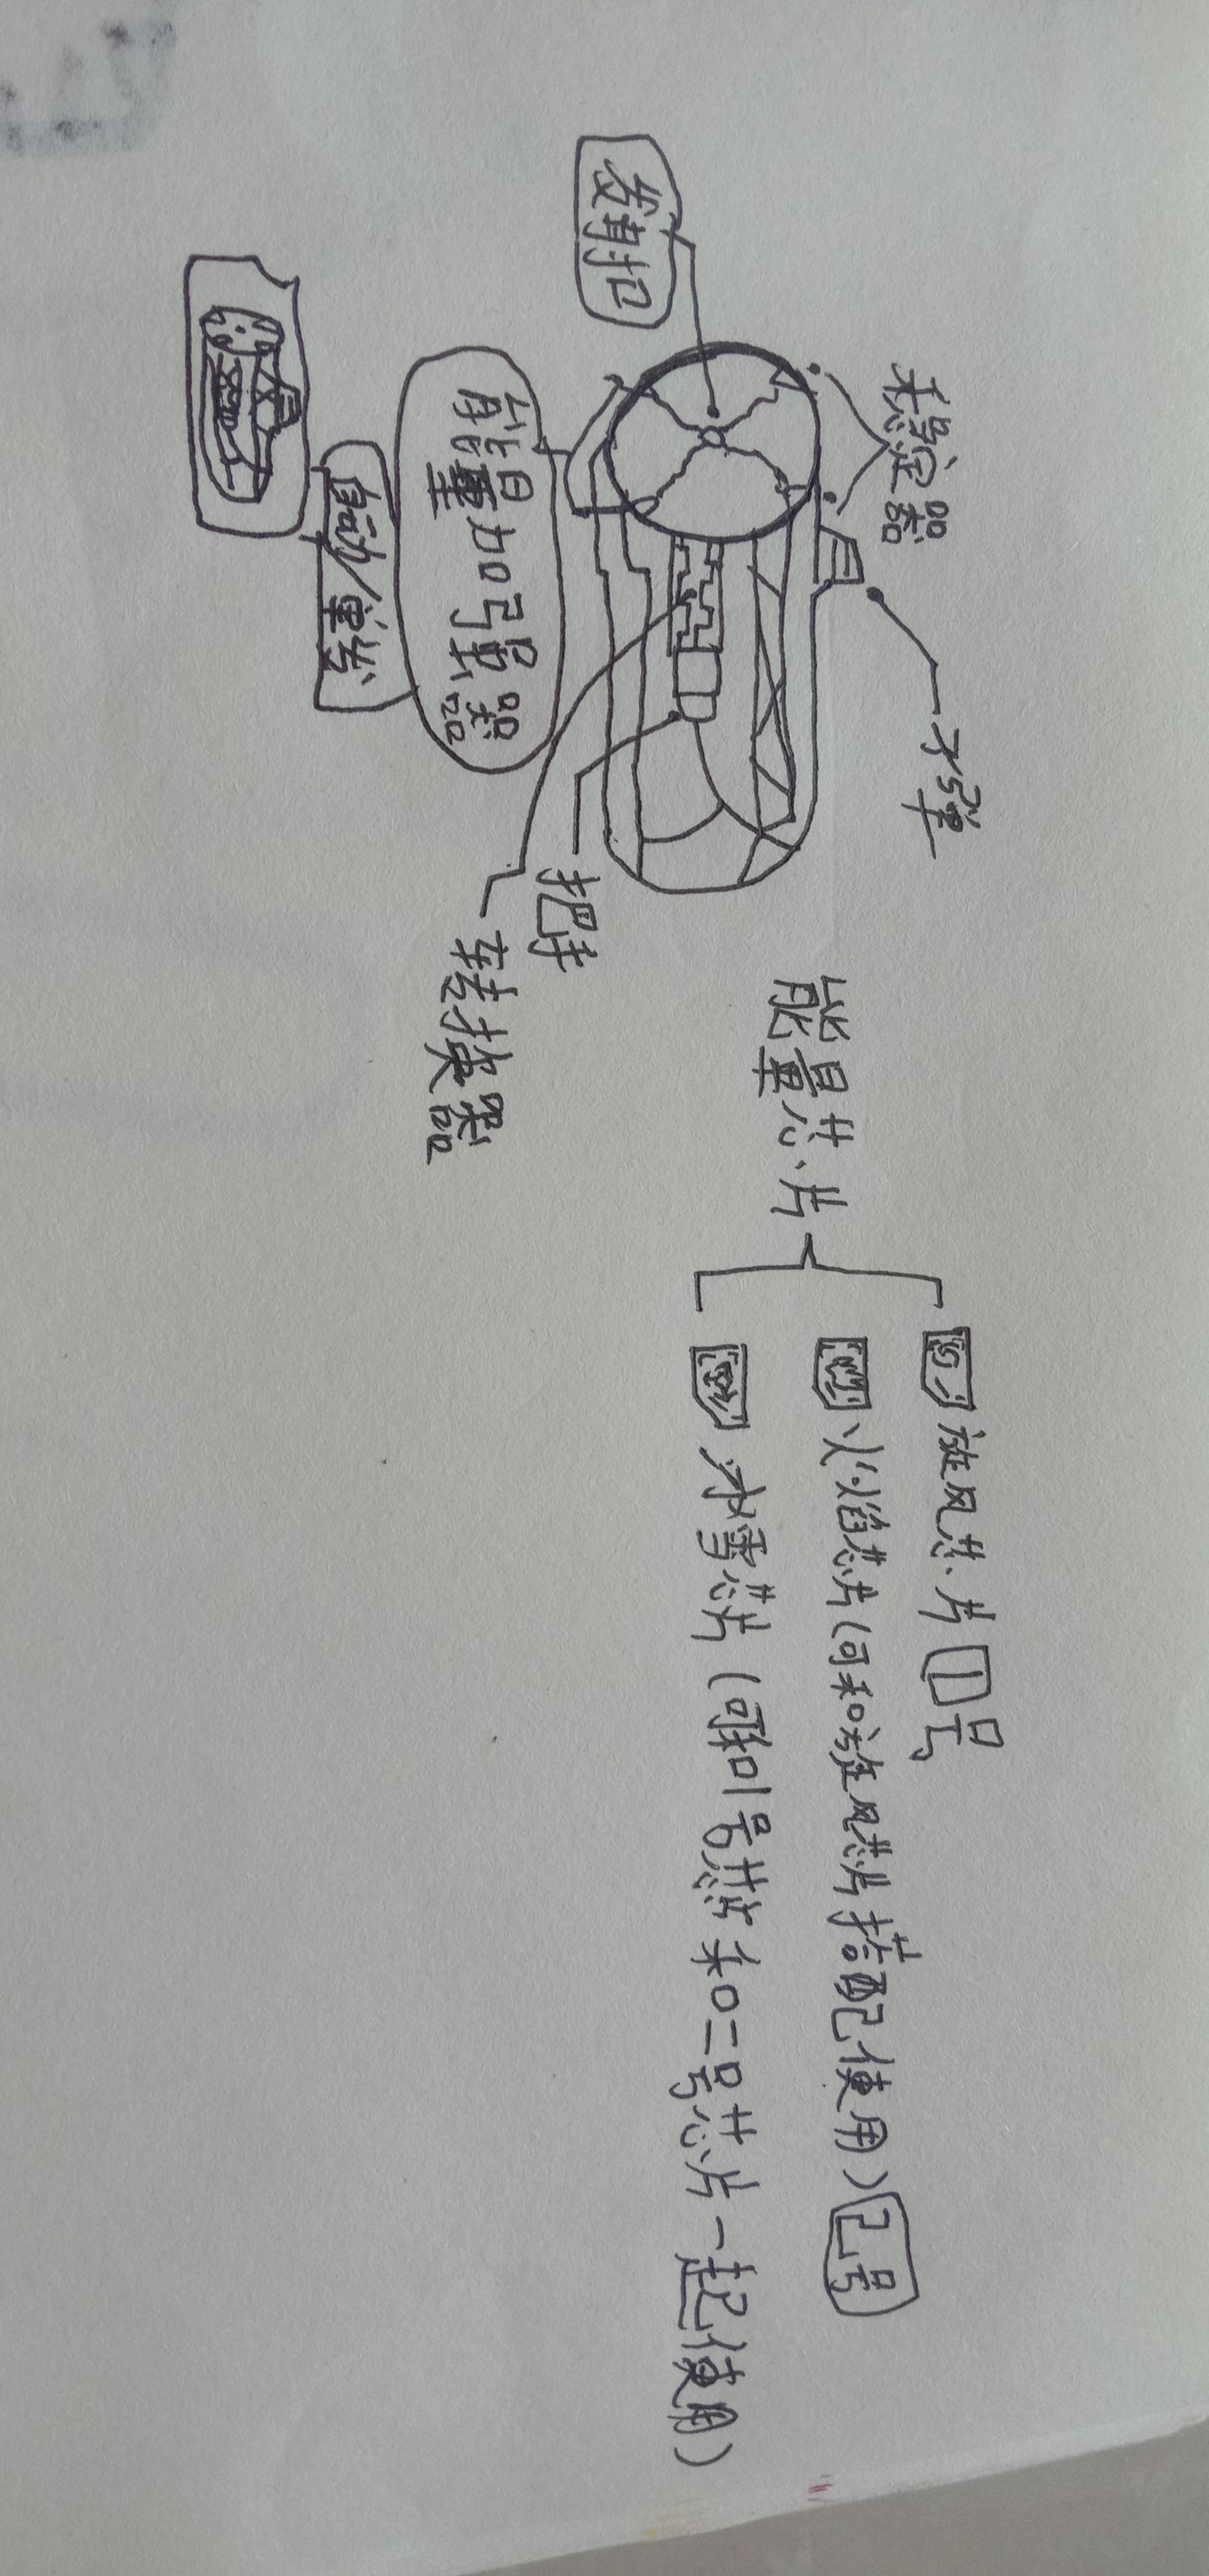 稳定器
子弹
发射扣
能量加强器
自动/单发
把手
转换器
能量芯片
旋风芯片1号
火焰芯片(可和旋风芯片搭配使用)2号
冰雪芯片(可和1号芯片和二号芯片一起使用)